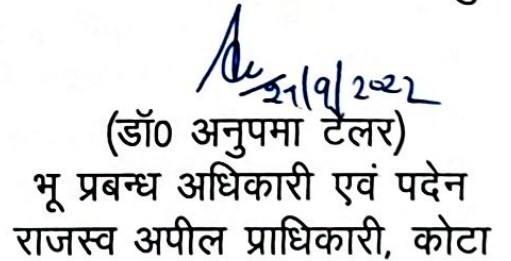 27/9/2022
(डॉ0 अनुपमा टेलर)
भू प्रबन्ध अधिकारी एवं पदेन
राजस्व अपील प्राधिकारी, कोटा